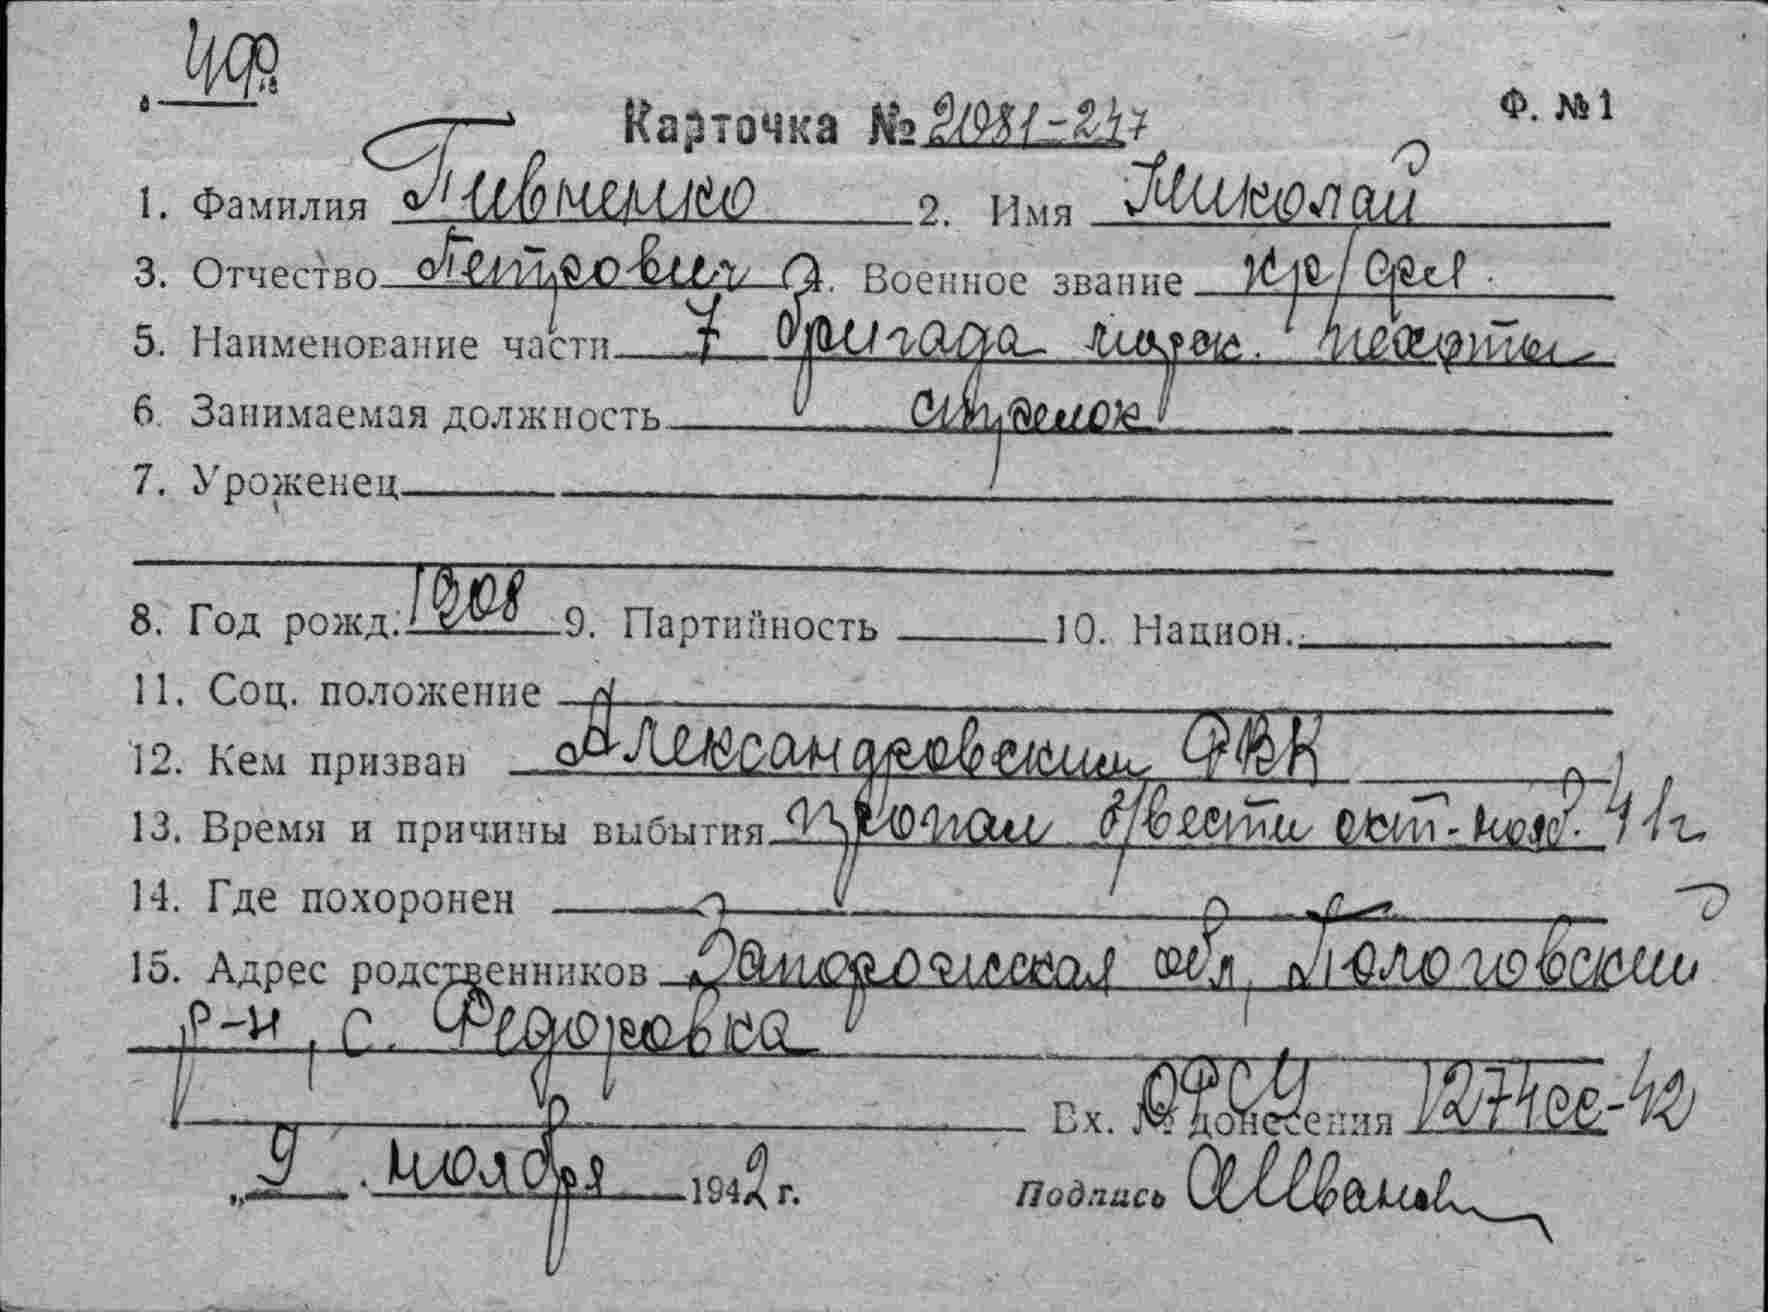 Ф. №1
Карточка № 21981-247
1. Фамилия Пивненко 2. Имя Николай
3. Отчество Петрович Военное звание кр/фл.
5. Наименование части 7 бригада морск. пехоты
6. Занимаемая должность стрелок
7. Уроженец
8. Год рожд. 1908 9. Партийность 10. Национ.
11. Соц. положение
12. Кем призван Александровским РВК
13. Время и причины выбытия пропал б/вести окт-нояб. 41г
14. Где похоронен
15. Адрес родственников Запорожская обл, Пологовский
р-н, с. Федоровка
Вх. № донесения 1274сс-42
„9 . ноября 1942 г. Подпись